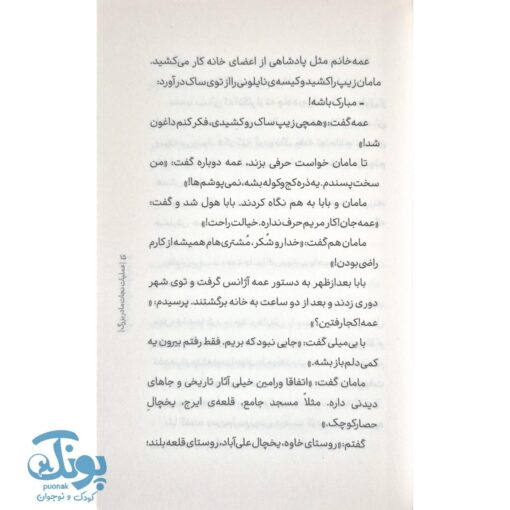 عمه‌خانم مثل پادشاهی از اعضای خانه کار می‌کشید.
مامان زیپ را کشید و کیسه‌ی نایلونی را از توی ساک درآورد:
- مبارک باشه!
عمه گفت: «همچی زیپ ساک رو کشیدی، فکر کنم داغون
شد!»
تا مامان خواست حرفی بزند، عمه دوباره گفت: «من
سخت‌پسندم. یه ذره کج‌وکوله بشه، نمی‌پوشم‌ها!»
مامان و بابا به هم نگاه کردند. بابا هول شد و گفت:
«عمه‌جان! کار مریم حرف نداره. خیالت راحت!»
مامان هم گفت: «خدا رو شُکر، مُشتری‌هام همیشه از کارم
راضی بودن!»
بابا بعدازظهر به دستور عمه آژانس گرفت و توی شهر
دوری زدند و بعد از دو ساعت به خانه برگشتند. پرسیدم: «
عمه! کجا رفتین؟»
با بی‌میلی گفت: «جایی نبود که بریم. فقط رفتم بیرون یه
کمی دلم باز بشه.»
مامان گفت: «اتفاقا ورامین خیلی آثار تاریخی و جاهای
دیدنی داره. مثلاً مسجد جامع، قلعه‌ی ایرج، یخچالِ
حصارکوچک.»
گفتم: «روستای خاوه، یخچال علی‌آباد، روستای قلعه بلند؛
| عملیات نجات مادربزرگ |
پونک
puonak
کودک و نوجوان